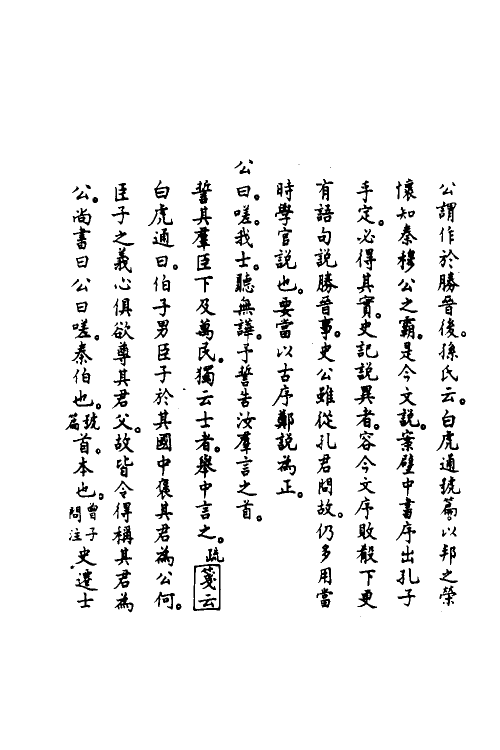 公謂作於勝晉後。孫氏云。白虎通號篇以邦之榮
懷知秦穆公之霸。是今文說。案壁中書序出孔子
手定。必得其實。史記說異者。容今文序敗散下更
有語句說勝晉事。史公雖從孔君問故。仍多用當
時學官說也。要當以古序鄭說為正。
公曰。嗟。我士。聽無譁。予誓告汝羣言之首。
誓其羣臣下及萬民。獨云士者。舉中言之。疏箋云
白虎通曰。伯子男臣子於其國中褒其君為公何。
臣子之義心俱欲尊其君父。故皆令得稱其君為
公。尚書曰公曰嗟。秦伯也。號篇首。本也。曾子問注史遷士